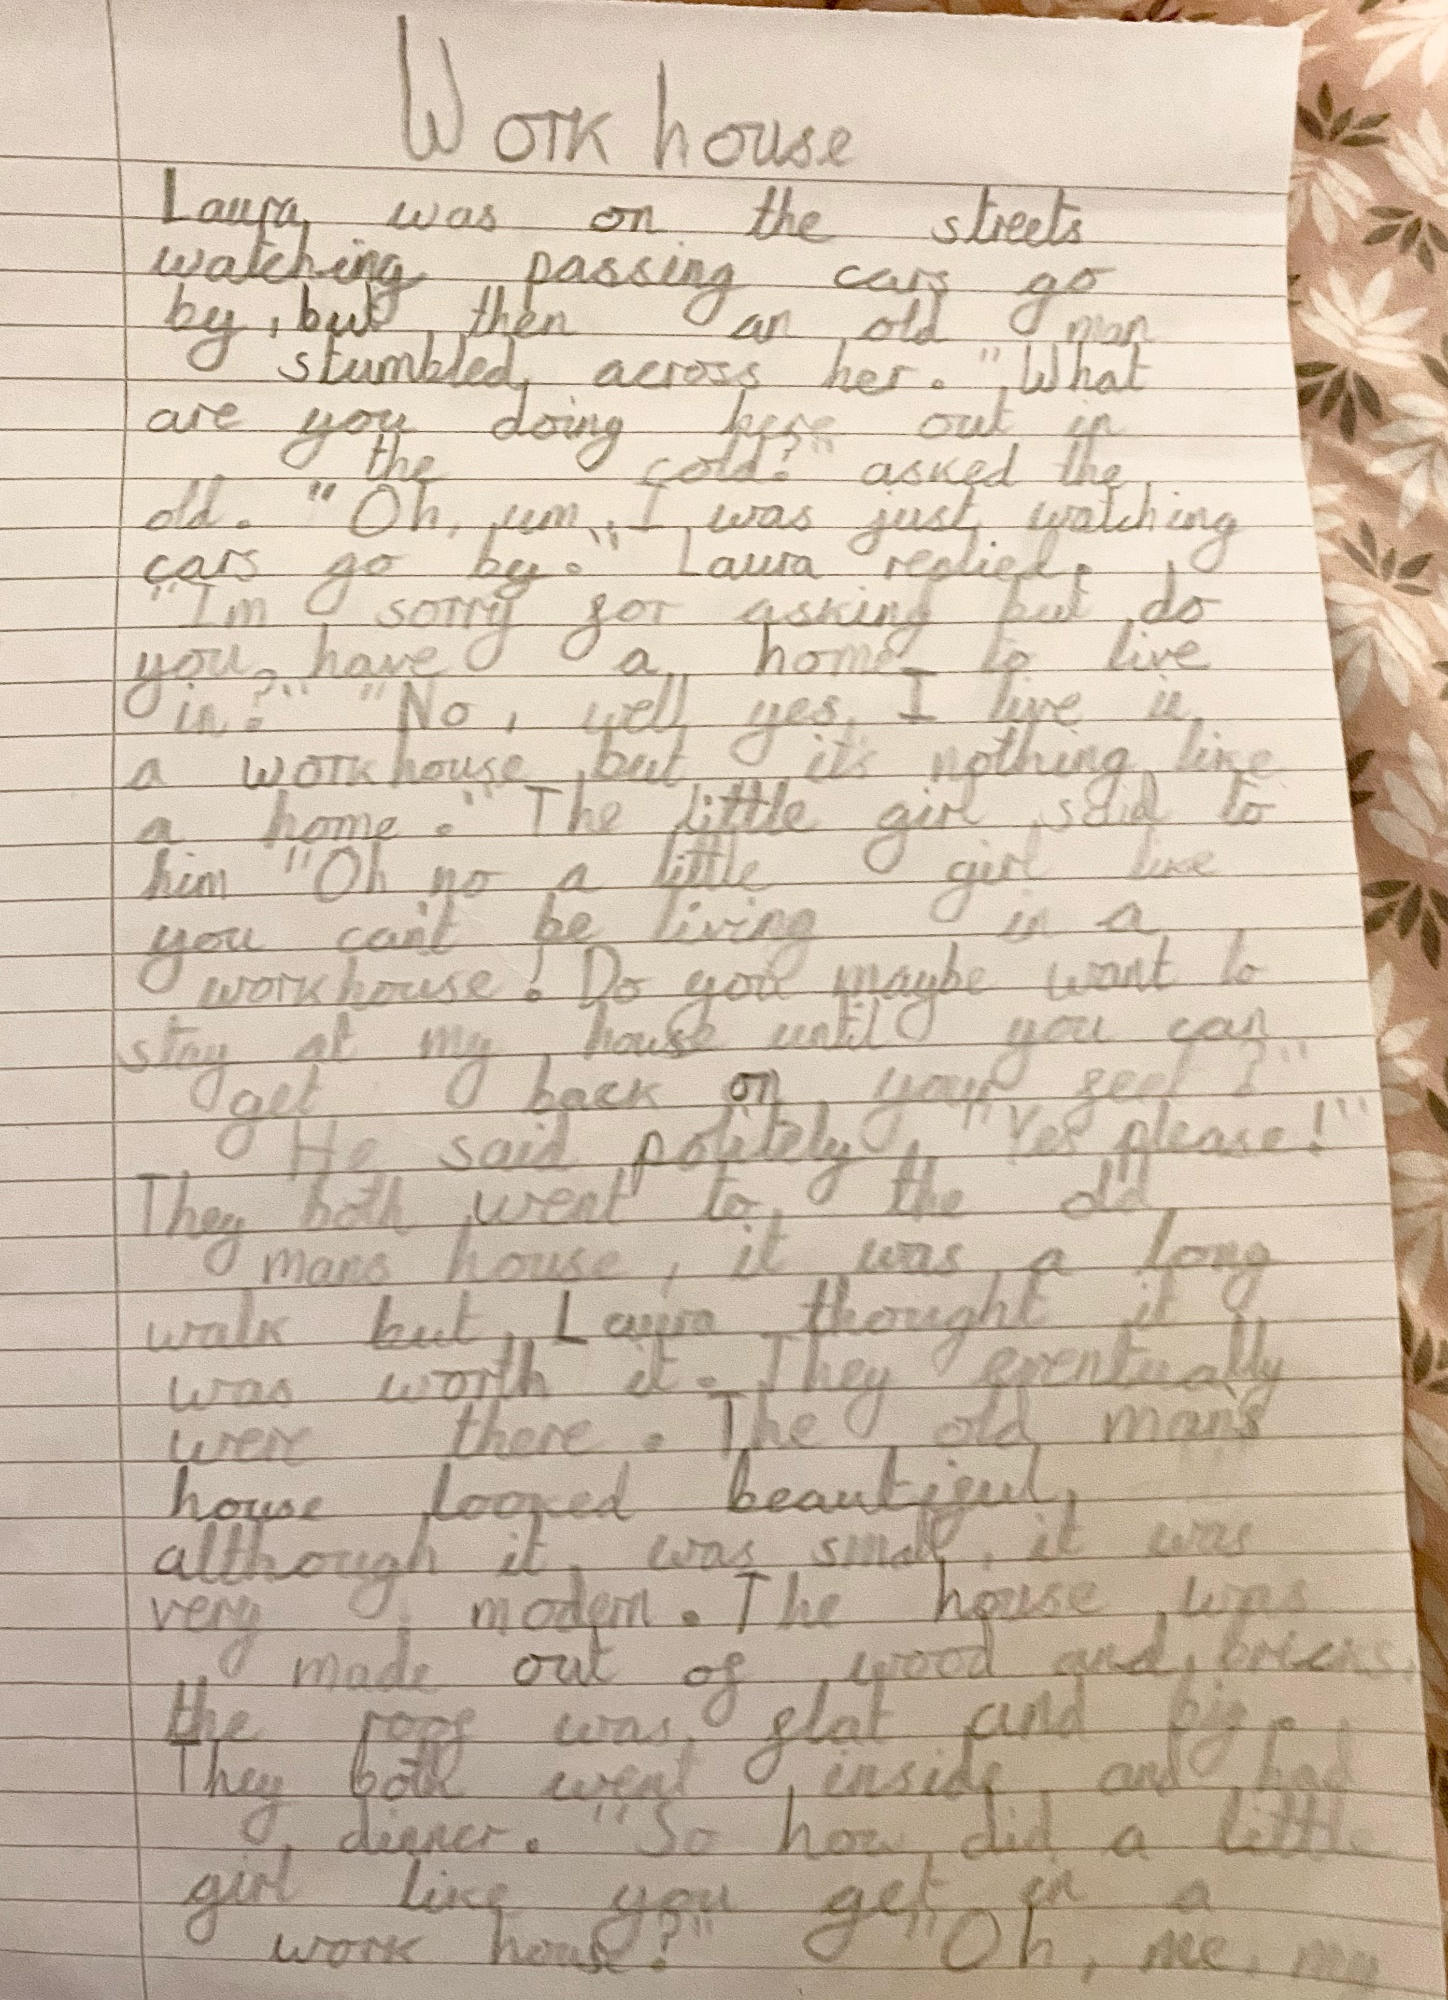 Work house
Laura was on the streets
watching passing cars go
by, but then an old man
stumbled across her. "What
are you doing here out in
the cold?" asked the
old. "Oh, um, I was just watching
cars go by." Laura replied.
"Im sorry for asking but do
you have a home to live
in?" "No, well yes, I live in
a workhouse but it's nothing like
a home." The little girl said to
him "Oh no a little girl like
you can't be living in a
workhouse! Do you maybe want to
stay at my house until you can
get back on your feet?"
He said politely, "Yes please!"
They both went to the old
mans house, it was a long
walk but Laura thought it
was worth it. They eventually
were there. The old man's
house looked beautiful,
although it was small, it was
very modern. The house was
made out of wood and bricks,
the roof was flat and big.
They both went inside and had
dinner. "So how did a little
girl like you get in a
work house?" "Oh, me, my